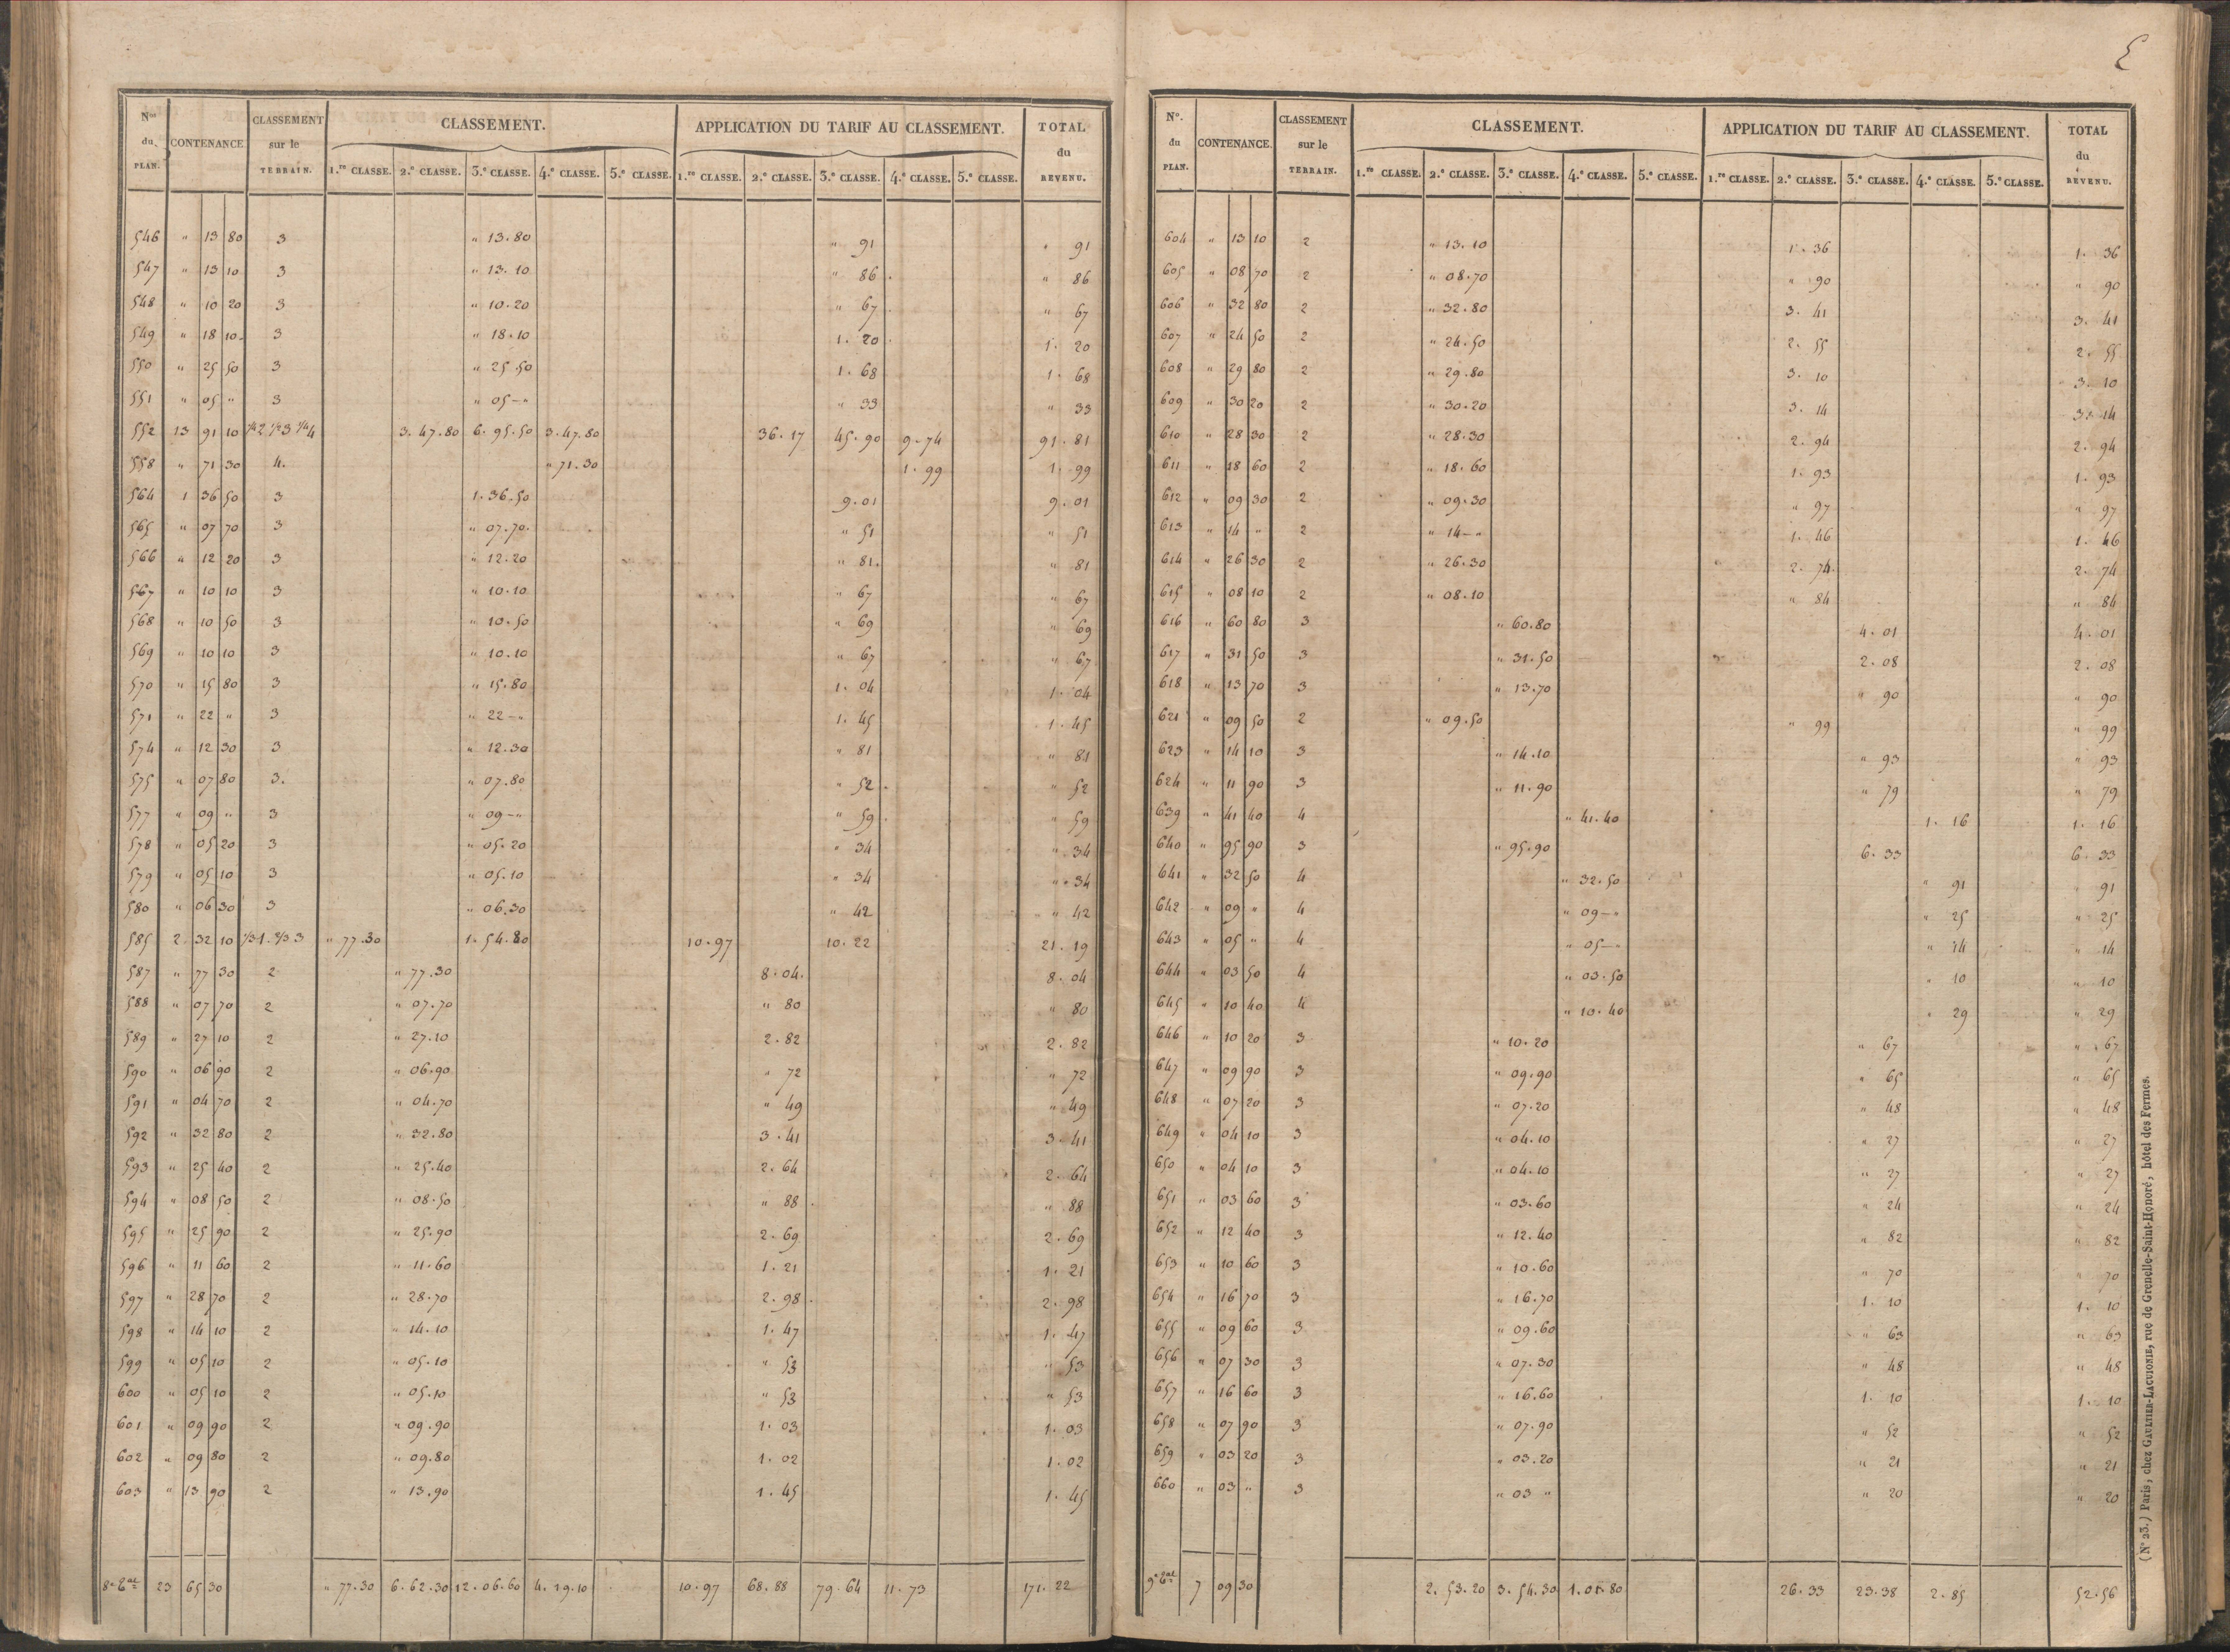 N.os du PLAN. CONTENANCE CLASSEMENT sur le TERRAIN. CLASSEMENT. APPLICATION DU TARIF AU CLASSEMENT. TOTAL du REVENU.
1.re CLASSE. 2.e CLASSE. 3.e CLASSE. 4.e CLASSE. 5.e CLASSE. 1.re CLASSE. 2.e CLASSE. 3.e CLASSE. 4.e CLASSE. 5.e CLASSE.
546 " 13 80 3 " 13.80 " 91 " 91
547 " 13 10 3 " 13.10 " 86 " 86
548 " 10 20 3 " 10.20 " 67 " 67
549 " 18 10 3 " 18.10 1. 20 1. 20
550 " 25 50 3 " 25.50 1. 68 1. 68
551 " 05 " 3 " 05-" " 33 " 33
552 13 91 10 1/4 2 1/2 3 1/4 4 3.47.80 6.95.50 3.47.80 36.17 45.90 9.74 91.81
558 " 71 30 4. " 71.30 1. 99 1. 99
564 1 36 50 3 1.36.50 9.01 9.01
565 " 07 70 3 " 07.70 " 51 " 51
566 " 12 20 3 " 12.20 " 81. " 81
567 " 10 10 3 " 10.10 " 67 " 67
568 " 10 50 3 " 10.50 " 69 " 69
569 " 10 10 3 " 10.10 " 67 " 67
570 " 15 80 3 " 15.80 1. 04 1. 04
571 " 22 " 3 " 22-" 1. 45 1. 45
574 " 12 30 3 " 12.30 " 81 " 81
575 " 07 80 3. " 07.80 " 52 " 52
577 " 09 " 3 " 09-" " 59 " 59
578 " 05 20 3 " 05.20 " 34 " 34
579 " 05 10 3 " 05.10 " 34 " 34
580 " 06 30 3 " 06.30 " 42 " 42
585 2 32 10 1/3 1. 2/3 3 " 77.30 1.54.80 10.97 10.22 21.19
587 " 77 30 2 " 77.30 8.04. 8.04
588 " 07 70 2 " 07.70 " 80 " 80
589 " 27 10 2 " 27.10 2.82 2.82
590 " 06 90 2 " 06.90 " 72 " 72
591 " 04 70 2 " 04.70 " 49 " 49
592 " 32 80 2 " 32.80 3.41 3.41
593 " 25 40 2 " 25.40 2.64 2.64
594 " 08 50 2 " 08.50 " 88 " 88
595 " 25 90 2 " 25.90 2.69 2.69
596 " 11 60 2 " 11.60 1.21 1.21
597 " 28 70 2 " 28.70 2.98 2.98
598 " 14 10 2 " 14.10 1.47 1.47
599 " 05 10 2 " 05.10 " 53 " 53
600 " 05 10 2 " 05.10 " 53 " 53
601 " 09 90 2 " 09.90 1.03 1.03
602 " 09 80 2 " 09.80 1.02 1.02
603 " 13 90 2 " 13.90 1.45 1.45
23 65 30 " 77.30 6.62.30 12.06.60 4.19.10 10.97 68.88 79.64 11.73 171.22
N.o du PLAN. CONTENANCE. CLASSEMENT sur le TERRAIN. CLASSEMENT. APPLICATION DU TARIF AU CLASSEMENT. TOTAL du REVENU.
1.re CLASSE. 2.e CLASSE. 3.e CLASSE. 4.e CLASSE. 5.e CLASSE. 1.re CLASSE. 2.e CLASSE. 3.e CLASSE. 4.e CLASSE. 5.e CLASSE.
604 " 13 10 2 " 13.10 1. 36 1. 36
605 " 08 70 2 " 08.70 " 90 " 90
606 " 32 80 2 " 32.80 3. 41 3. 41
607 " 24 50 2 " 24.50 2. 55 2. 55
608 " 29 80 2 " 29.80 3. 10 3. 10
609 " 30 20 2 " 30.20 3. 14 3. 14
610 " 28 30 2 " 28.30 2. 94 2. 94
611 " 18 60 2 " 18.60 1. 93 1. 93
612 " 09 30 2 " 09.30 " 97 " 97
613 " 14 " 2 " 14-" 1. 46 1. 46
614 " 26 30 2 " 26.30 2. 74 2. 74
615 " 08 10 2 " 08.10 " 84 " 84
616 " 60 80 3 " 60.80 4. 01 4. 01
617 " 31 50 3 " 31.50 2. 08 2. 08
618 " 13 70 3 " 13.70 " 90 " 90
621 " 09 50 2 " 09.50 " 99 " 99
623 " 14 10 3 " 14.10 " 93 " 93
624 " 11 90 3 " 11.90 " 79 " 79
639 " 41 40 4 " 41.40 1. 16 1. 16
640 " 95 90 3 " 95.90 6. 33 6. 33
641 " 32 50 4 " 32.50 " 91 " 91
642 " 09 " 4 " 09-" " 25 " 25
643 " 05 " 4 " 05-" " 14 " 14
644 " 03 50 4 " 03.50 " 10 " 10
645 " 10 40 4 " 10.40 " 29 " 29
646 " 10 20 3 " 10.20 " 67 " 67
647 " 09 90 3 " 09.90 " 65 " 65
648 " 07 20 3 " 07.20 " 48 " 48
649 " 04 10 3 " 04.10 " 27 " 27
650 " 04 10 3 " 04.10 " 27 " 27
651 " 03 60 3 " 03.60 " 24 " 24
652 " 12 40 3 " 12.40 " 82 " 82
653 " 10 60 3 " 10.60 " 70 " 70
654 " 16 70 3 " 16.70 1. 10 1. 10
655 " 09 60 3 " 09.60 " 63 " 63
656 " 07 30 3 " 07.30 " 48 " 48
657 " 16 60 3 " 16.60 1. 10 1. 10
658 " 07 90 3 " 07.90 " 52 " 52
659 " 03 20 3 " 03.20 " 21 " 21
660 " 03 " 3 " 03 " " 20 " 20
7 09 30 2.53.20 3.54.30 1.01.80 26.33 23.38 2.85 52.56
(N° 23.) Paris, chez GAULTIER-LAGUIONIE, rue de Grenelle-Saint-Honoré, hôtel des Fermes.